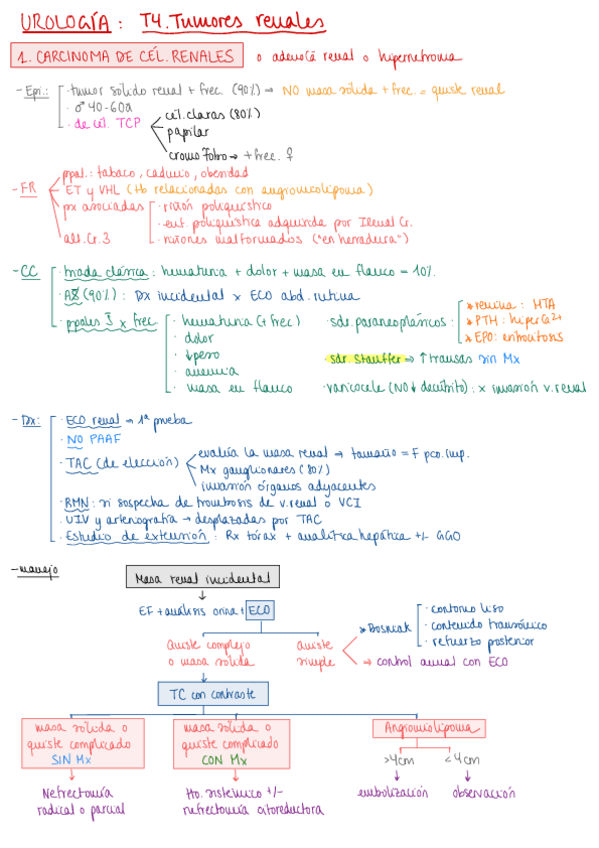 UROLOGÍA: T4. Tumores renales
1. CARCINOMA DE CÉL. RENALES o adenoCa renal o hipernefroma
- Epi.: · tumor sólido renal + frec. (90%) → NO masa sólida + frec. = quiste renal
· ♂ 40-60a
· de cél. TCP
cél. claras (80%)
papilar
cromófobo → + frec. ♀
- FR
ppal.: tabaco, cadmio, obesidad
ET y VHL (tb relacionadas con angiomiolipoma)
px asociadas · riñón poliquístico
· enf. poliquística adquirida por IRenal Cr.
· riñones malformados ("en herradura")
alt. Cr. 3
- CC · triada clásica: hematuria + dolor + masa en flanco = 10%.
· (90%): Dx incidental x ECO abd. rutina
· ppales x frec
· hematuria (+ frec)
· dolor
· ↓peso
· anemia
· masa en flanco
· sdr. paraneoplásicos:
* renina: HTA
* PTH: hiperCa2+
* EPO: eritrocitosis
· sdr Stauffer → ↑ transas sin Mx
· varicocele (NO↓ decúbito): x invasión v. renal
- Dx: · ECO renal → 1ª prueba
· NO PAAF
· TAC (de elección)
evalúa la masa renal → tamaño = F pco. imp.
Mx ganglionares (80%)
invasión órganos adyacentes
· RMN: si sospecha de trombosis de v. renal o VCI
· UIV y arteriografía → desplazadas por TAC
· Estudio de extensión: Rx tórax + analítica hepática +/- GGO
- manejo
Masa renal incidental
EF + análisis orina + ECO
Quiste complejo
o masa sólida
quiste
simple
* Bosniak
· contorno liso
· contenido transónico
· refuerzo posterior
→ control anual con ECO
TC con contraste
masa sólida o
quiste complicado
SIN Mx
masa sólida o
quiste complicado
CON Mx
Angiomiolipoma
>4cm
<4cm
Nefrectomía
radical o parcial
Tto. sistémico +/-
nefrectomía citoreductora
embolización
observación